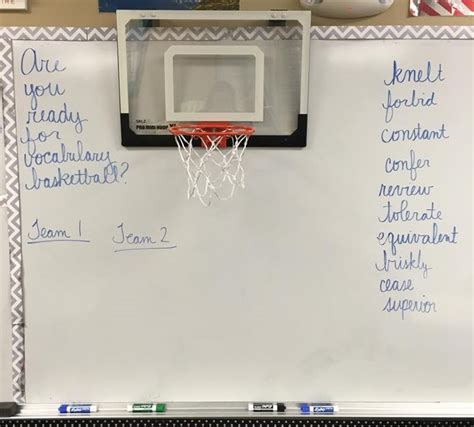 Are
you
ready
for
vocabulary
basketball?
Team 1
Team 2
SKLZ
PRO MINI HOOP XL
knelt
forbid
constant
confer
review
tolerate
equivalent
briskly
cease
superior